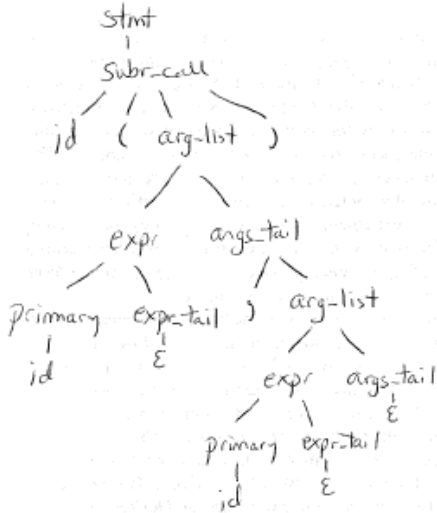 stmt
subr_call
id ( arg_list )
expr args_tail
primary expr_tail ) arg_list
id ε expr args_tail
primary expr_tail ε
id ε